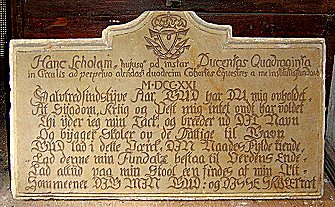 Hanc Scholam, hujusq; ad instar Ducentas Quadraginta
in Circulis ad perpetuo alendas duodecim Cohortes Equestres a me institutis fundavi
M·DCCXXI
Halvtredsindstyve Aar, GUD, har DU mig opholdet,
At Sÿgdom, Krig og Pest mig intet ondt har voldet
Thi ÿder jeg min Tack, og breeder ud DIT Navn
Og bÿgger Skoler op de Fattige til Gavn
GUD lad i dette Værck, DIN Naades Fylde kiende,
Lad denne min Fundatz bestaa til Verdens Ende,
Lad altid paa min Stool een findes af min Æt
Som meener DIG MIN GUD, og DISSE SKOLER ret